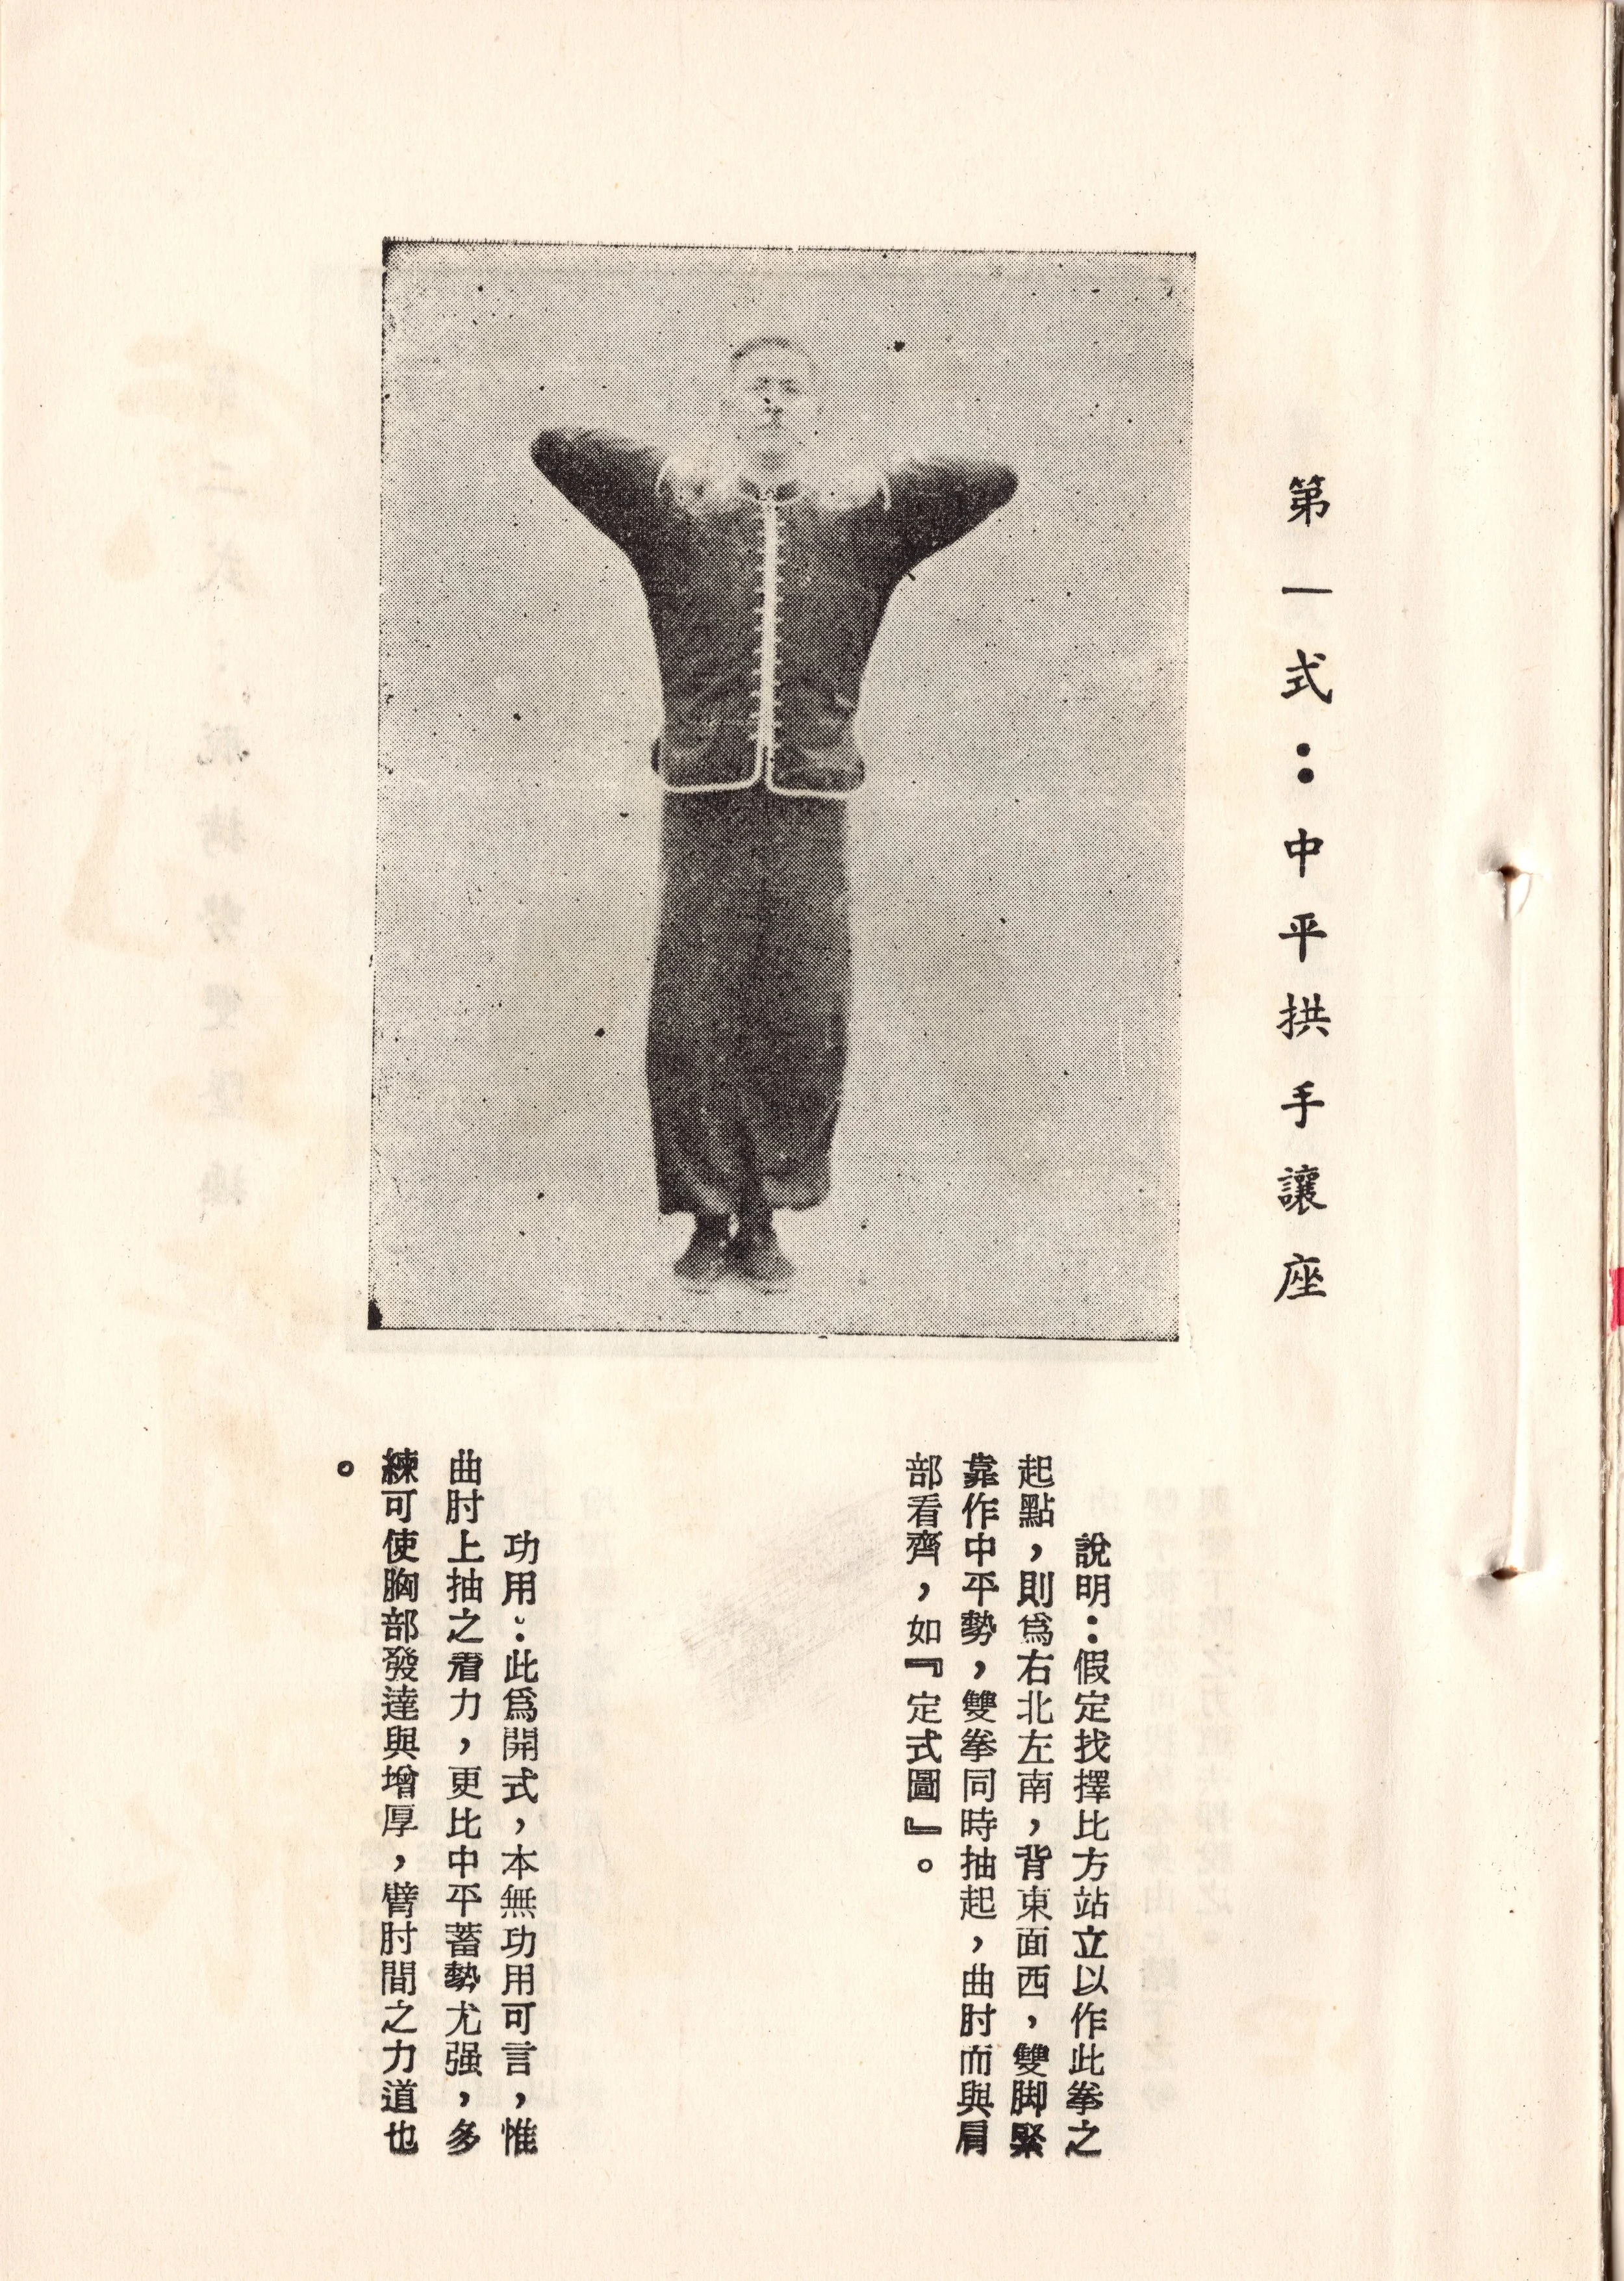 第一式：中平拱手讓座
說明：假定找擇比方站立以作此拳之
起點，則爲右北左南，背東面西，雙脚緊
靠作中平勢，雙拳同時抽起，曲肘而與肩
部看齊，如『定式圖』。
功用：此爲開式，本無功用可言，惟
曲肘上抽之着力，更比中平蓄勢尤强，多
練可使胸部發達與增厚，臂肘間之力道也
。